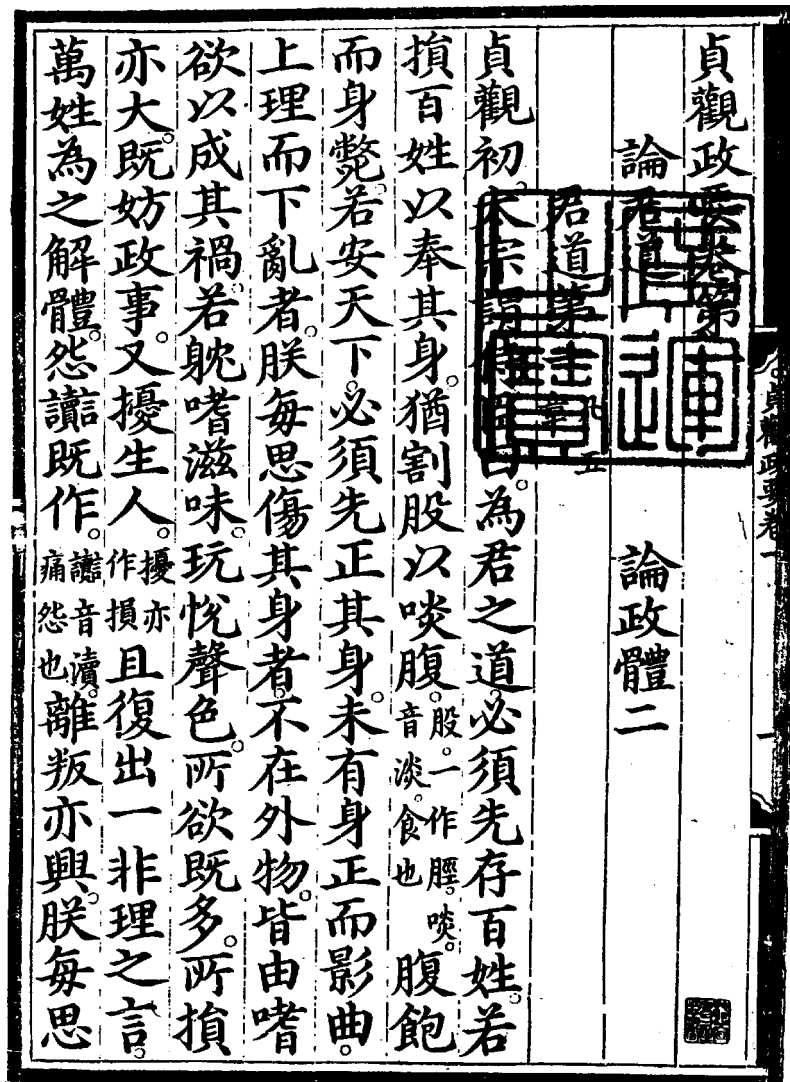 貞觀政要卷第一
論君道一　論政體二
君道第一 凡五章
貞觀初。太宗謂侍臣曰。為君之道。必須先存百姓。若
損百姓以奉其身。猶割股以啖腹。股。一作脛。啖。音淡。食也 腹飽
而身斃。若安天下。必須先正其身。未有身正而影曲。
上理而下亂者。朕每思傷其身者。不在外物。皆由嗜
欲以成其禍。若躭嗜滋味。玩悅聲色。所欲既多。所損
亦大。既妨政事。又擾生人。擾亦作損 且復出一非理之言。
萬姓為之解體。怨讟既作。讟音瀆。痛怨也 離叛亦興。朕每思
貞觀政要卷一
一